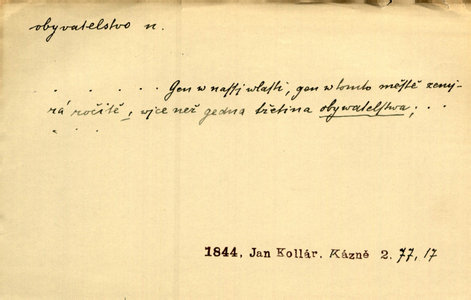 obyvatelstvo n.
. . . . . . Gen w nassj wlasti, gen w tomto městě zemj-
rá ročitě, wjce než gedna třetina obywatelstwa; . . .
. . . .
1844, Jan Kollár. Kázně 2. 77, 17